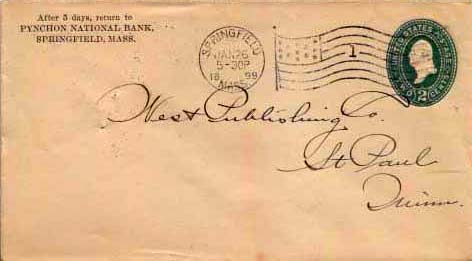 After 5 days, return to
PYNCHON NATIONAL BANK,
SPRINGFIELD, MASS.
SPRINGFIELD
JAN 26
5-30P
18 99
MASS.
1
UNITED STATES POSTAGE
TWO 2 CENTS
West Publishing Co.
St Paul
Minn.